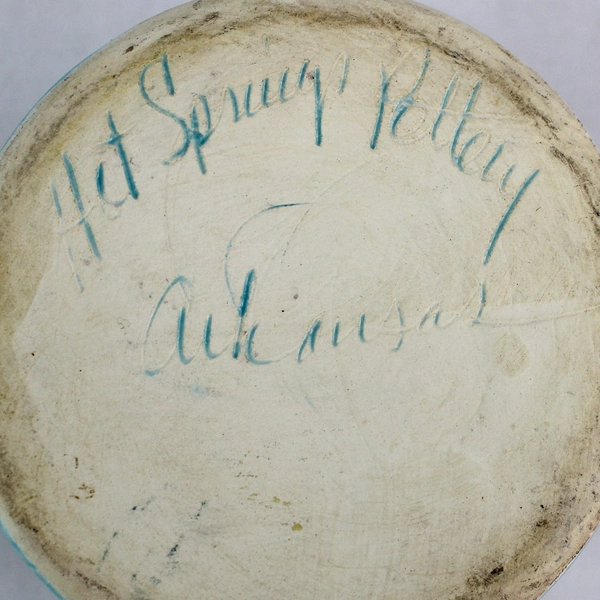 Hot Springs Pottery
Arkansas